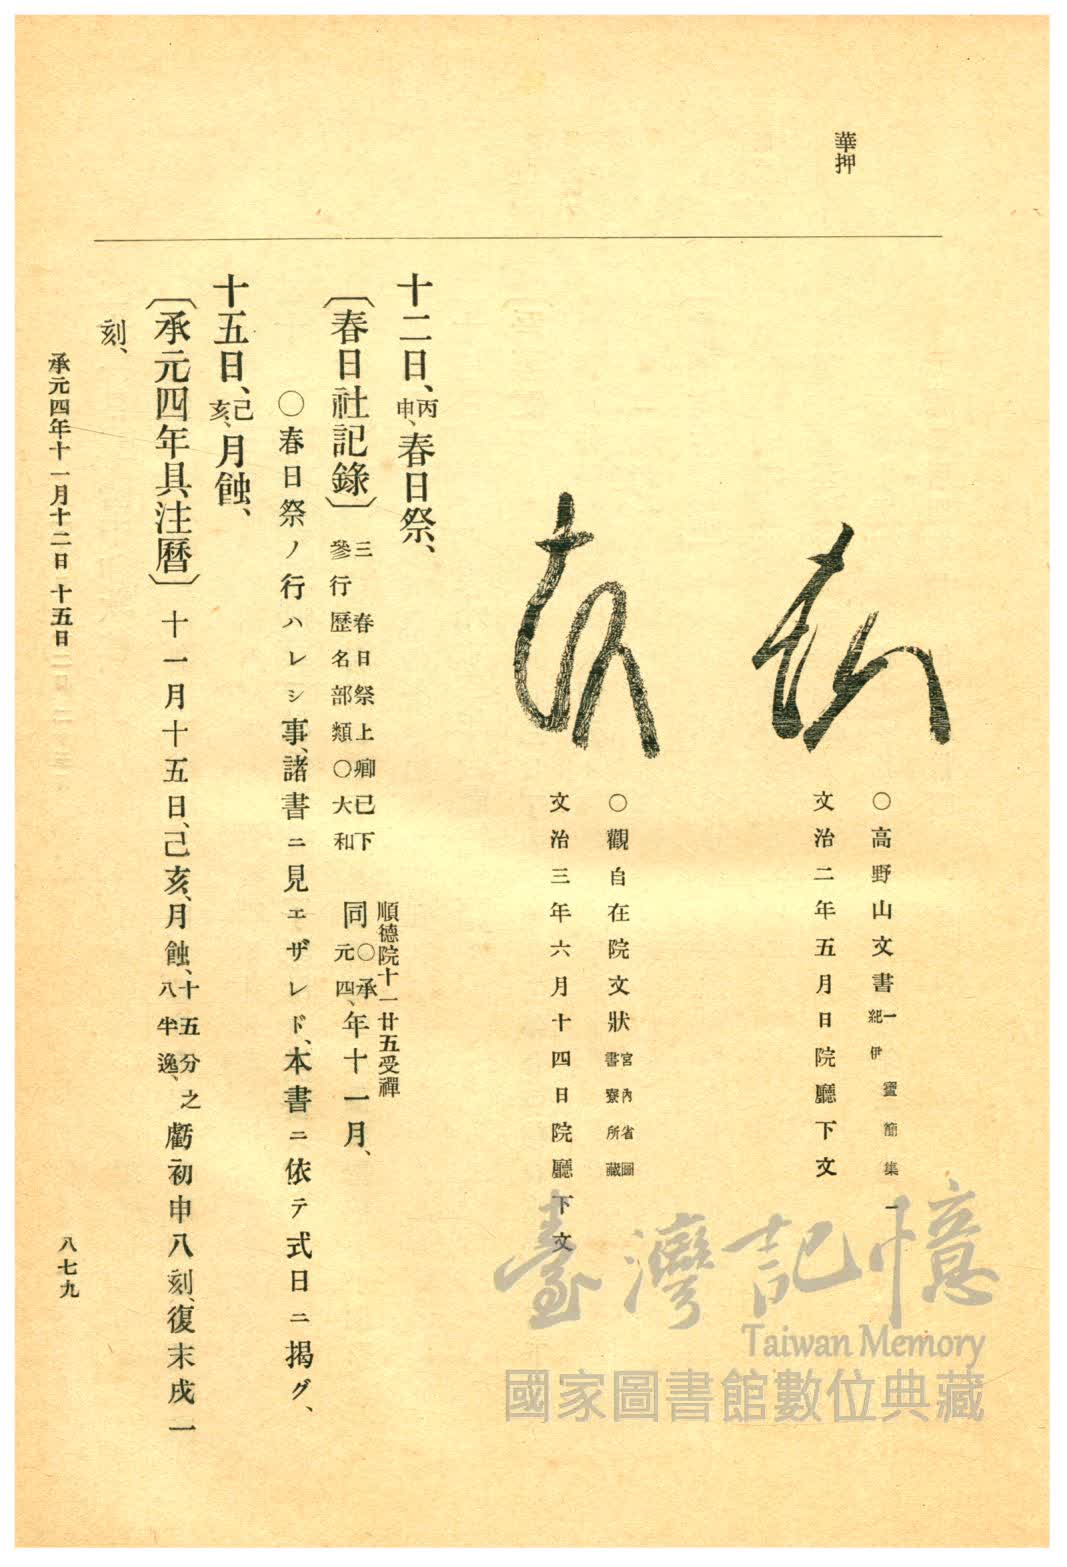 華押
○高野山文書 一紀伊 寶簡集一
文治二年五月日院廳下文
○觀自在院文狀 宮內省圖書寮所藏
文治三年六月十四日院廳下文
十二日、丙申、春日祭、
順德院十一廿五受禪
〔春日社記錄〕 三 春日祭上卿已下參行歷名部類○大和 同○承元四、年十一月、
○春日祭ノ行ハレシ事、諸書ニ見エザレド、本書ニ依テ式日ニ揭グ、
十五日、己亥、月蝕、
〔承元四年具注曆〕 十一月十五日、己亥、月蝕、十五分之八半逸、虧初申八刻、復末戌一
刻、
承元四年十一月十二日 十五日
八七九
臺灣記憶
Taiwan Memory
國家圖書館數位典藏